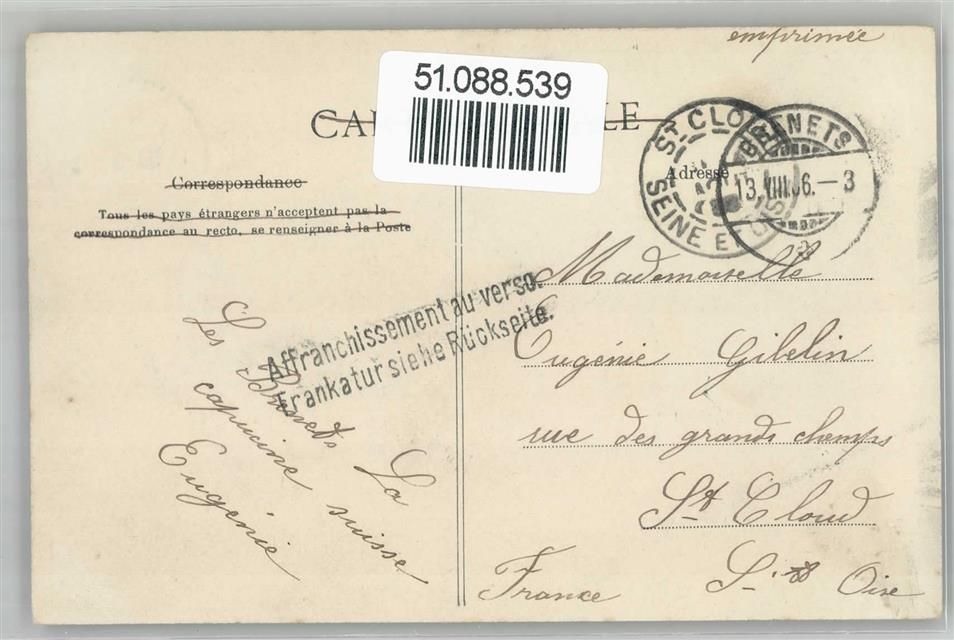 emprimée
51.088.539
CA LE
Correspondance
Tous les pays étrangers n'acceptent pas la
correspondance au recto, se renseigner à la Poste
Adresse
ST. CLOUD
SEINE ET OISE
BRENETS
13.VIII.06.–3
Affranchissement au verso.
Frankatur siehe Rückseite.
Les Brenets La
capucine suisse
Eugénie
Mademoiselle
Eugénie Gibelin
rue des grands champs
St Cloud
S. & Oise
France